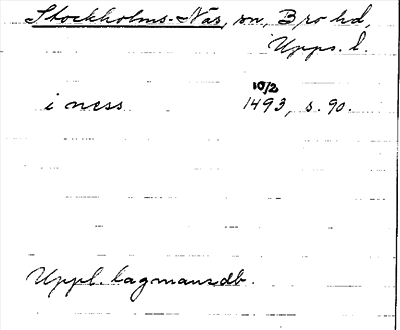 Stockholms-Näs, sn, Bro hd,
Upps. l.
i ness 10/2 1493, s. 90.
Uppl. lagmansdb.